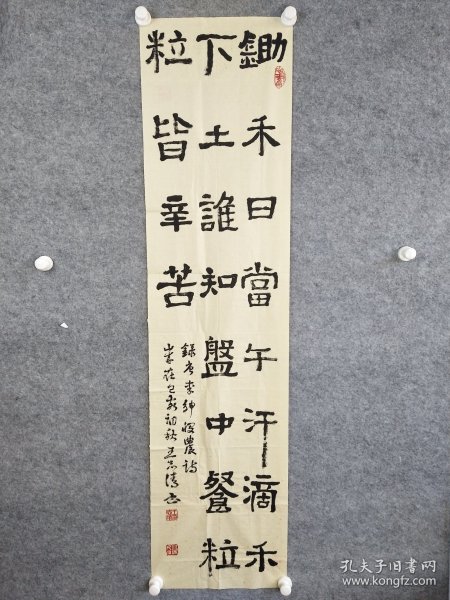 鋤禾日當午汗滴禾
下土誰知盤中餐粒
粒皆辛苦
錄唐李紳憫農詩
歲在己亥初秋王志清書
孔夫子旧书网
www.kongfz.com